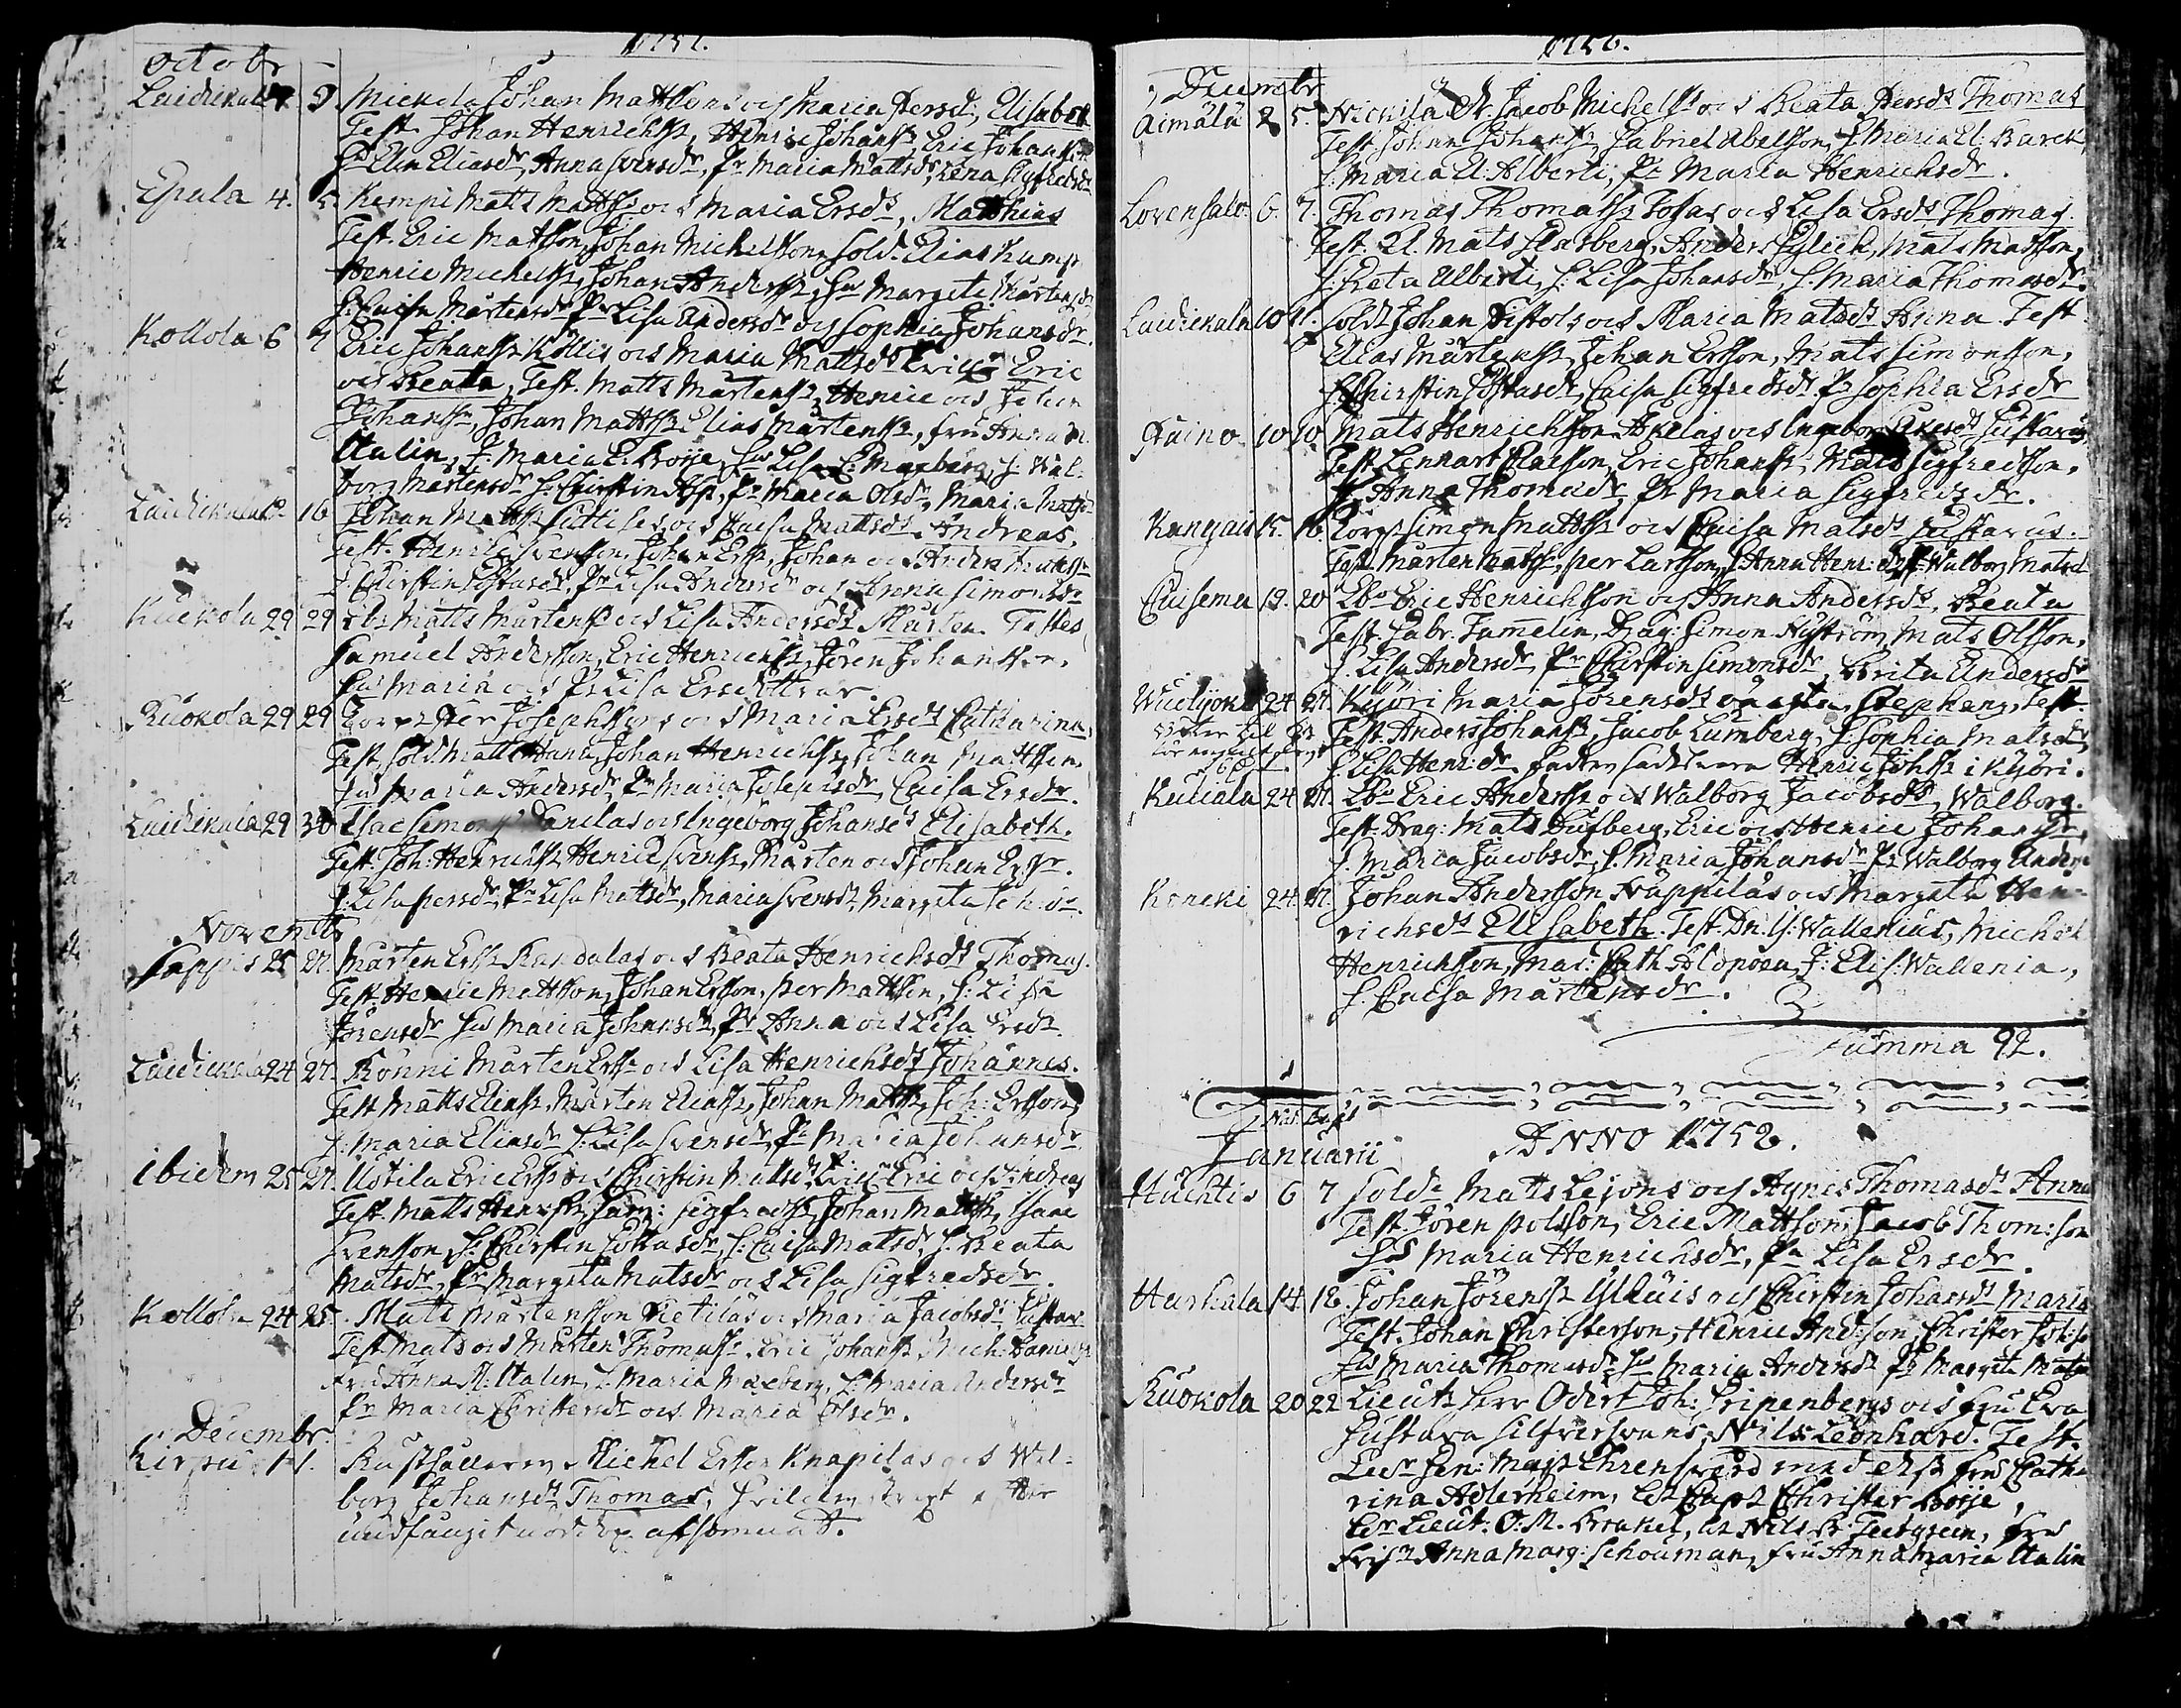 1751.
Octobr
Laidiekala 4. 5 Mickola Johan Mattsons och Maria Persdr, Elisabet
Test. Johan Henrichss, Henric Johanss, Eric Johanss
Hu Elin Eliasdr, Anna Svensdr, Pr Maria Mattsdr, Lena Sigfredsdr
Epala 4. 5. Kempi Matts Mattss och Maria Ersdr, Matthias
Test. Eric Matsson, Johan Michelsson, Sold. Elias Kamp
Henric Michelss, Johan Anderss, Hu Margeta Mårtensdr
H: Caisa Mårtensdr Pr Lisa Andersdr och Sophia Johansdr.
Kollola 6 7 Eric Johanss Köllis och Maria Mattsdr Eric
och Beata, Test. Matts Mårtenss, Henric och Johan
Johanss, Johan Mattss Elias Mårtenss, fru Anna M.
Italin, J: Maria E. Boije, Hu Lisa C: Maxberg, J: Wal-
borg Mårtensdr H: Chirstin Pr Maria Olsdr, Maria Matsdr
Laidiekala 16 Johan Mattss och Caisa Mattsdr Andreas.
Test. Henric Svensson, Johan Erss, Johan och Anders
H: Chirstin Pr Lisa Andersdr och Brena Simonsdr
Kuokola 29 29 Matts Mårtenss och Lisa Andersdr Mårten. Testes
Samuel Andersson, Eric Henricss, Jören Johansson,
Hu Maria och Pr Lisa Ersdöttrar.
Kuokola 29 29 Per Josephssons och Maria Ersdr Catharina,
Test. Sold. Matts Hane, Johan Henrichss, Johan Mattsson,
Hu Maria Andersdr, Pr Maria Josephsdr, Caisa Ersdr.
Laidiekala 29 30 Isac Simonss Danilas och Ingeborg Johansdr Elisabeth.
Test. Joh: Henrichss, Henric Svenss, Mårten och Johan Erss.
H: Lisa Persdr, Pr Lisa Mattsdr, Maria Svensdr, Margeta
Novembr
Sappis 25 27. Mårten Erss Kandalas och Beata Henrichsdr Thomas.
Test. Henric Mattson, Johan Ersson, Per Mattson, H: Lisa
Jörensdr Hu Maria Johansdr, Pr Anna och Lisa Ersdr.
Laidiekala 24 27. Könni Mårten Erss och Lisa Henrichsdr Johannes.
Test Matts Eliass, Mårten Eliass, Johan Mattss, Joh: Ersson,
H: Maria Eliasdr H: Lisa Svensdr, Pr Maria Johansdr
ibidem 25 27. Uotila Eric Erss och Chirstin Mattsdr Eric och Andreas
Test. Matts Henrss, Sam: Sigfredss, Johan Mattss, Isaac
Svensson, H: Chirstin H: Caisa Matsdr, H. Beata
Matsdr, Pr Margeta Matsdr och Lisa Sigfredsdr.
Kollola 24 25. Matts Mårtensson Pietilas och Maria Jacobsdr Gustav
Test Mats och Mårten Thomass. Eric Johanss Mich:
Fru Anna M: Italin, J. Maria Maxberg, H. Maria Andersdr
Pr Maria Christersdr och Maria Olsdr.
Decembr.
Kirpu 1 1. Rusthållaren Michel Erson Knapilas och Wal-
borg Johansdr Thomas, hvilken strax efter
undfångit nöddop afsomnat.
1751.
Decembr
Aimälä 2 5. Nickila Dr. Jacob Michelss och Beata Persdr Thomas
Test. Johan Johanss, Gabriel Abelsson, J. Maria El. Barck,
J. Maria El: Alberti, Pr Maria Henrichsdr.
Lovensalo 6. 7. Thomas Thomass Tosas och Lisa Ersdr Thomas.
Test. Kl. Mats Flasberg, Anders Mats Matsson,
J. Greta Alberti, H: Lisa Johansdr, H. Maria Thomasdr.
Laidiekala 10 Soldt Johan Pistols och Maria Matsdr Anna Test
Elias Mårtenss, Johan Ersson, Mats Simonsson,
H: Chirstin Caisa Sigfredsdr Pr Sophia Ersdr
Puino 10 10 Mats Henrichsson Akelas och Ingebor Gustavus
Test. Lennart Claesson, Eric Johanss, Mats Sigfredson,
H. Anna Thomasdr, Pr Maria Sigfredsdr.
Kangais 15. 16 Torp: Simon Mattss och Caisa Matsdr Gustavus.
Test Mårten Mattss, Per Larsson, H. Anna Henr:dr, Pr Walborg Matsdr
Caisema 19. 20 Lbo Eric Henrichsson och Anna Andersdr, Beata
Test. Gabr. Tamelin, Drag: Simon Nyström, Mats Olsson,
H. Lisa Andersdr, Pr Chirstin Simonsdr, Brita Andersdr
24 27. Kyöri Maria Sörensdrs oäcta Stephans, Test.
Test. Anders Johanss, Jacob Lumberg, H. Sophia Matsdr,
H. Lisa Henr:dr fadren sades vara Henric Johss i Kyöri.
Keiiala 24 27. Lbo Eric Anderss och Walborg Jacobsdr, Walborg.
Test. Drag: Mats Dufberg, Eric och Henric Johanss,
H. Maria Jacobsdr, H. Maria Johansdr Pr Walborg Anders
Koneki 24. 27. Johan Andersson Näppiläs och Margeta Hen-
richsdr Elisabeth. Test. Dn. G: Wallenius, Michel
Henrichsson, Mad: Cath Alopöea, J: Elis: Wallenia,
H. Caisa Mårtensdr.
Summa 92.
Nat. Bapt
Januarii
ANNO 1752.
Huchtis 6 7 Soldr Matts Lejons och Agnes Thomasdr Anna
Test. Jören Polsson, Eric Mattson, Jacob Thom:son
Hu Maria Henrichsdr, Pr Lisa Ersdr.
Harhala 14. 18. Johan Jörenss Ylluis och Chirstin Johansdr Maria
Test. Johan Christerson, Henric And:son, Christer Joh:s
Hu Maria Thomasdr Hu Maria Andersdr Pr Margeta Mats
Kuokola 20 22 Lieutn Herr Odert Joh: Gripenbergs och Fru Eva
Gustava Silfversvans, Nils Leonhard. Test.
Herr Gen: Maj: Ehrensverd med dess Fru Catha
rina Adlerheim, Hr Capt Christer Boije,
Herr Lieut: O: M. Brakel, Hr Nils B: Teetgren, Fru
Frih: Anna Marg: Schouman, Fru Anna Maria Italin